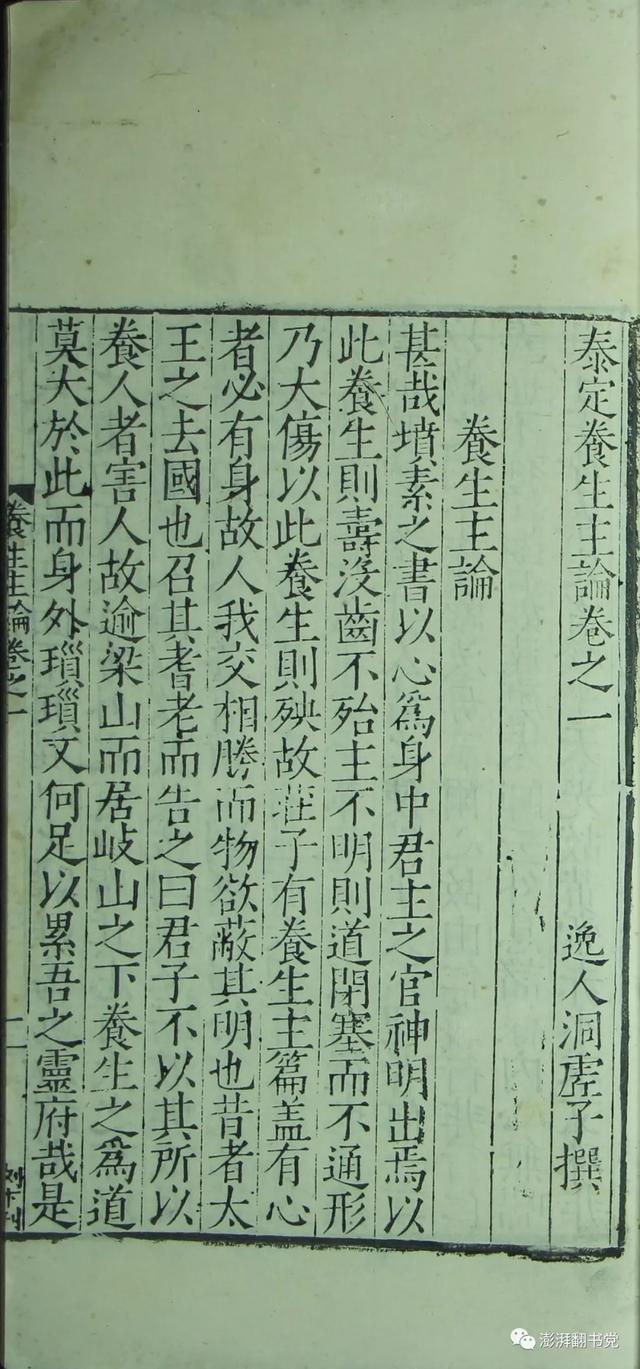 泰定養生主論卷之一
逸人洞虗子撰
養生主論
甚哉墳素之書以心爲身中君主之官神明出焉以
此養生則壽沒齒不殆主不明則道閉塞而不通形
乃大傷以此養生則殃故莊子有養生主篇盖有心
者必有身故人我交相勝而物欲蔽其明也昔者太
王之去國也召其耆老而告之曰君子不以其所以
養人者害人故逾梁山而居岐山之下養生之爲道
莫大於此而身外瑣瑣文何足以累吾之靈府哉是
養生主論卷之一
澎湃翻书党